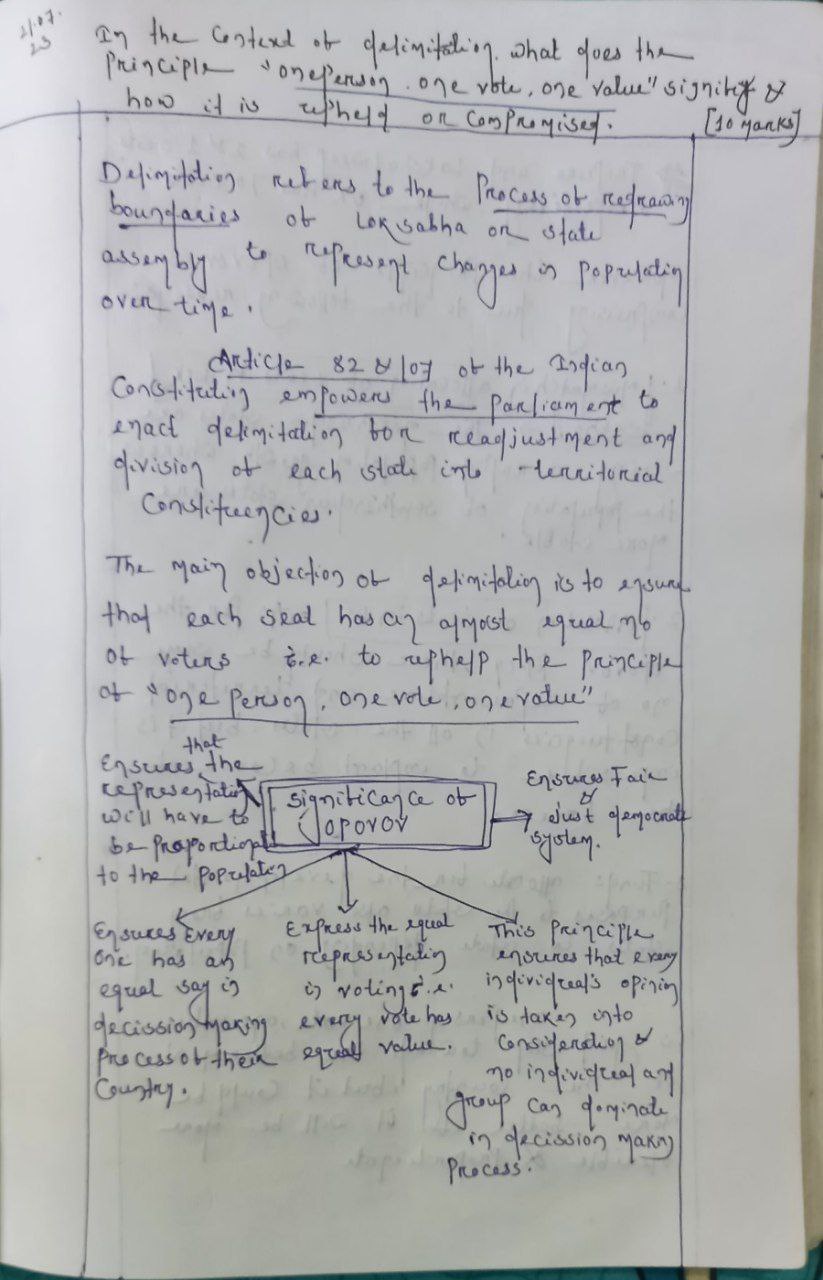 21.07.
23
In the context of delimitation, what does the
Principle "one person. one vote, one value" signify &
how it is upheld or compromised.
[10 Marks]
Delimitation refers to the Process of redrawing
boundaries of Loksabha or state
assembly to represent changes in population
over time.
Article 82 & 107 of the Indian
Constitution empowers the parliament to
enact delimitation for readjustment and
division of each state into territorial
Constituencies.
The main objection of delimitation is to ensure
that each seat has an almost equal no
of voters i.e. to uphelp the principle
of "one person, one vote, one value"
Ensures that the
representation
will have to
be proportional
to the population
significance of
OPOVOV
Ensures Fair
& Just democratic
system.
Ensures Every
one has an
equal say in
decission making
process of their
Country.
Express the equal
representation
in voting i.e.
every vote has
equal value.
This principle
ensures that every
individual's opinion
is taken into
Consideration &
no individual and
group can dominate
in decission making
Process.